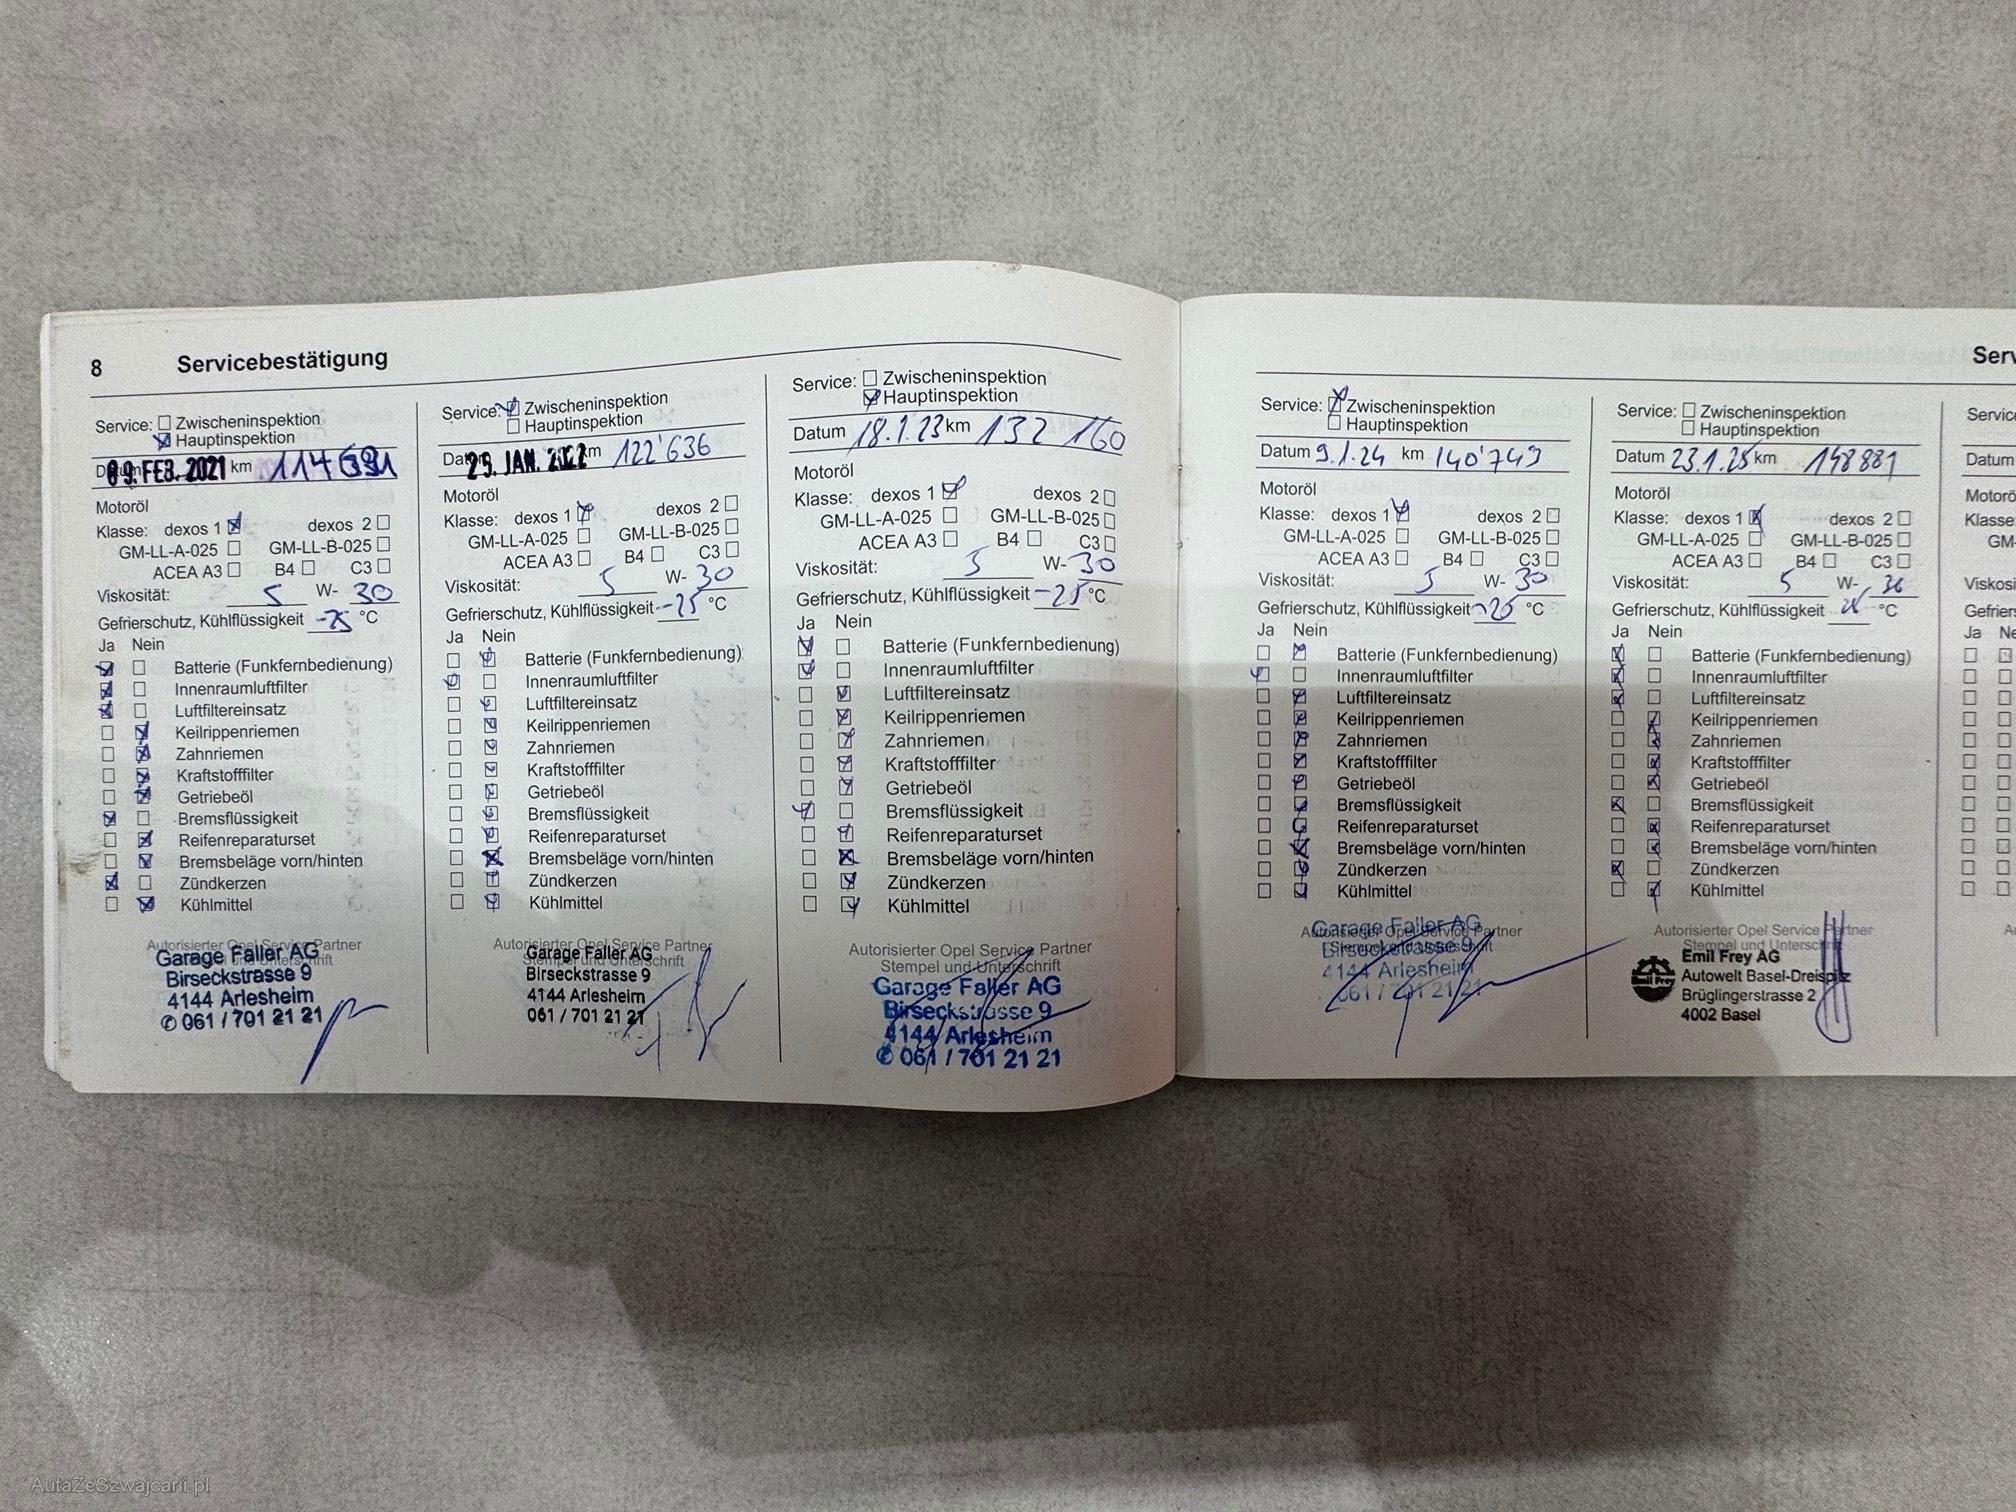 8 Servicebestätigung
Service: Zwischeninspektion
Hauptinspektion
Datum 09. FEB. 2021 km
Motoröl
Klasse: dexos 1 dexos 2
GM-LL-A-025 GM-LL-B-025
ACEA A3 B4 C3
Viskosität: 5 W- 30
Gefrierschutz, Kühlflüssigkeit -25 °C
Ja Nein
Batterie (Funkfernbedienung)
Innenraumluftfilter
Luftfiltereinsatz
Keilrippenriemen
Zahnriemen
Kraftstofffilter
Getriebeöl
Bremsflüssigkeit
Reifenreparaturset
Bremsbeläge vorn/hinten
Zündkerzen
Kühlmittel
Autorisierter Opel Service Partner
Stempel und Unterschrift
Garage Faller AG
Birseckstrasse 9
4144 Arlesheim
✆ 061 / 701 21 21
Service: Zwischeninspektion
Hauptinspektion
Datum 25. JAN. 2022 km 122'636
Motoröl
Klasse: dexos 1 dexos 2
GM-LL-A-025 GM-LL-B-025
ACEA A3 B4 C3
Viskosität: 5 W- 30
Gefrierschutz, Kühlflüssigkeit -25 °C
Ja Nein
Batterie (Funkfernbedienung)
Innenraumluftfilter
Luftfiltereinsatz
Keilrippenriemen
Zahnriemen
Kraftstofffilter
Getriebeöl
Bremsflüssigkeit
Reifenreparaturset
Bremsbeläge vorn/hinten
Zündkerzen
Kühlmittel
Autorisierter Opel Service Partner
Stempel und Unterschrift
Garage Faller AG
Birseckstrasse 9
4144 Arlesheim
061 / 701 21 21
Service: Zwischeninspektion
Hauptinspektion
Datum 18.1.23 km 132 160
Motoröl
Klasse: dexos 1 dexos 2
GM-LL-A-025 GM-LL-B-025
ACEA A3 B4 C3
Viskosität: 5 W- 30
Gefrierschutz, Kühlflüssigkeit -25 °C
Ja Nein
Batterie (Funkfernbedienung)
Innenraumluftfilter
Luftfiltereinsatz
Keilrippenriemen
Zahnriemen
Kraftstofffilter
Getriebeöl
Bremsflüssigkeit
Reifenreparaturset
Bremsbeläge vorn/hinten
Zündkerzen
Kühlmittel
Autorisierter Opel Service Partner
Stempel und Unterschrift
Garage Faller AG
Birseckstrasse 9
4144 Arlesheim
✆ 061 / 701 21 21
Serv
Service: Zwischeninspektion
Hauptinspektion
Datum 9.1.24 km 140'749
Motoröl
Klasse: dexos 1 dexos 2
GM-LL-A-025 GM-LL-B-025
ACEA A3 B4 C3
Viskosität: 5 W- 30
Gefrierschutz, Kühlflüssigkeit °C
Ja Nein
Batterie (Funkfernbedienung)
Innenraumluftfilter
Luftfiltereinsatz
Keilrippenriemen
Zahnriemen
Kraftstofffilter
Getriebeöl
Bremsflüssigkeit
Reifenreparaturset
Bremsbeläge vorn/hinten
Zündkerzen
Kühlmittel
Autorisierter Opel Service Partner
Stempel und Unterschrift
Garage Faller AG
Birseckstrasse 9
4144 Arlesheim
061 / 701 21 21
Service: Zwischeninspektion
Hauptinspektion
Datum 23.1.25 km 148881
Motoröl
Klasse: dexos 1 dexos 2
GM-LL-A-025 GM-LL-B-025
ACEA A3 B4 C3
Viskosität: 5 W- 30
Gefrierschutz, Kühlflüssigkeit °C
Ja Nein
Batterie (Funkfernbedienung)
Innenraumluftfilter
Luftfiltereinsatz
Keilrippenriemen
Zahnriemen
Kraftstofffilter
Getriebeöl
Bremsflüssigkeit
Reifenreparaturset
Bremsbeläge vorn/hinten
Zündkerzen
Kühlmittel
Autorisierter Opel Service Partner
Stempel und Unterschrift
Emil Frey
Emil Frey AG
Autowelt Basel-Dreispitz
Brüglingerstrasse 2
4002 Basel
Service
Datum
Motorö
Klasse
GM-
Viskosi
Gefrier
Ja Ne
AutaZeSzwajcarii.pl